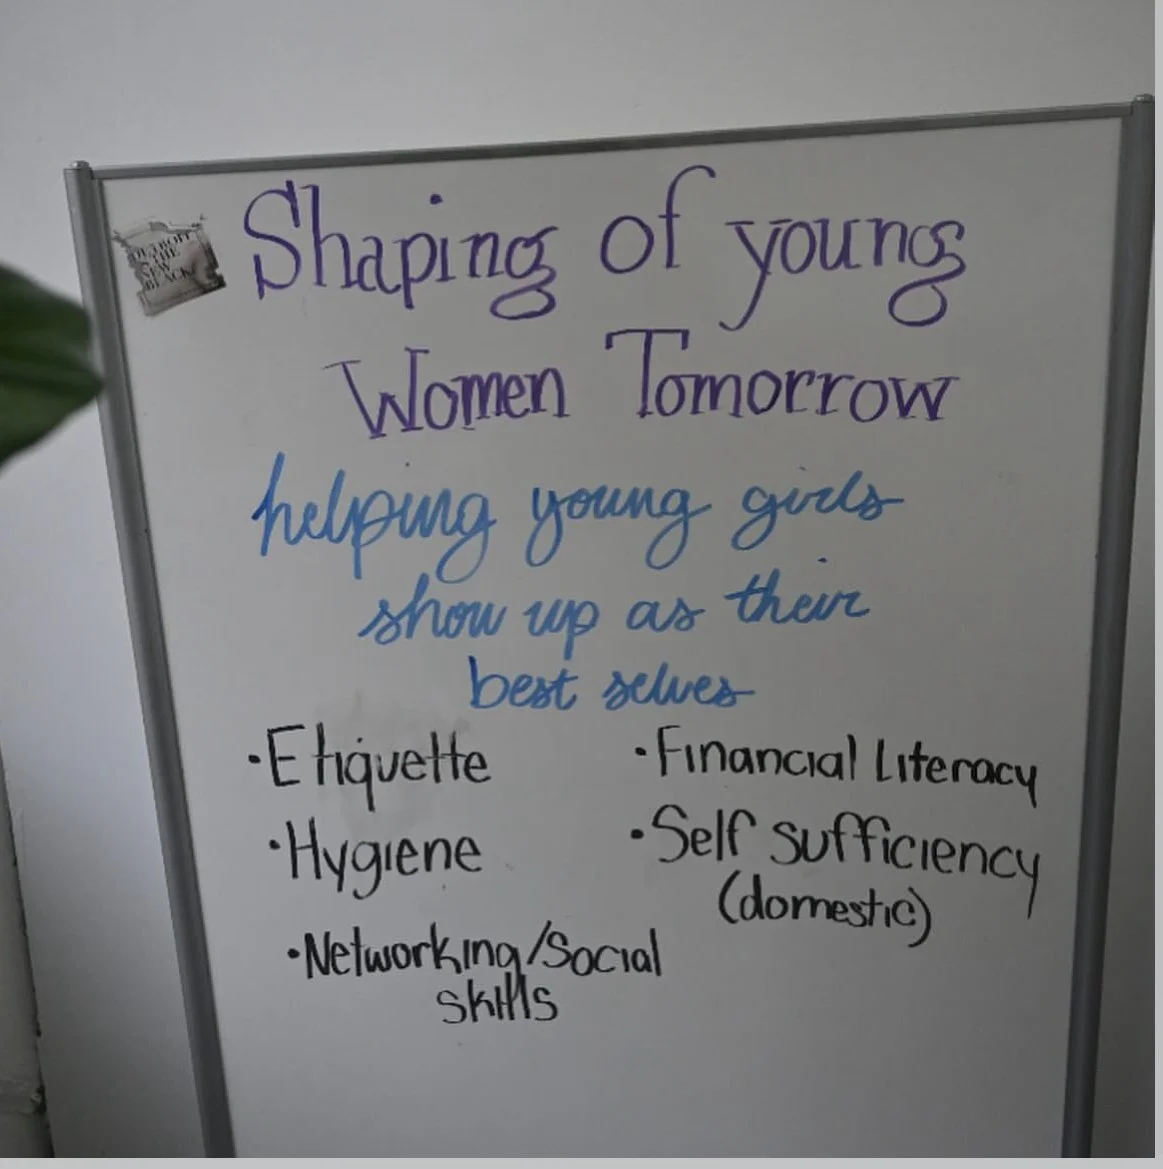 DETROIT
THE
NEW
BLACK
Shaping of young
Women Tomorrow
helping young girls
show up as their
best selves
·Etiquette
·Hygiene
·Networking/Social
skills
·Financial Literacy
·Self sufficiency
(domestic)